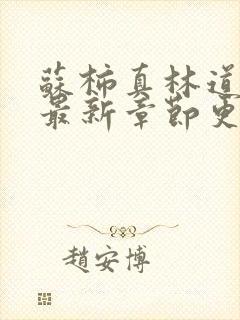 蘇柿真林道
最新章節更
趙安博